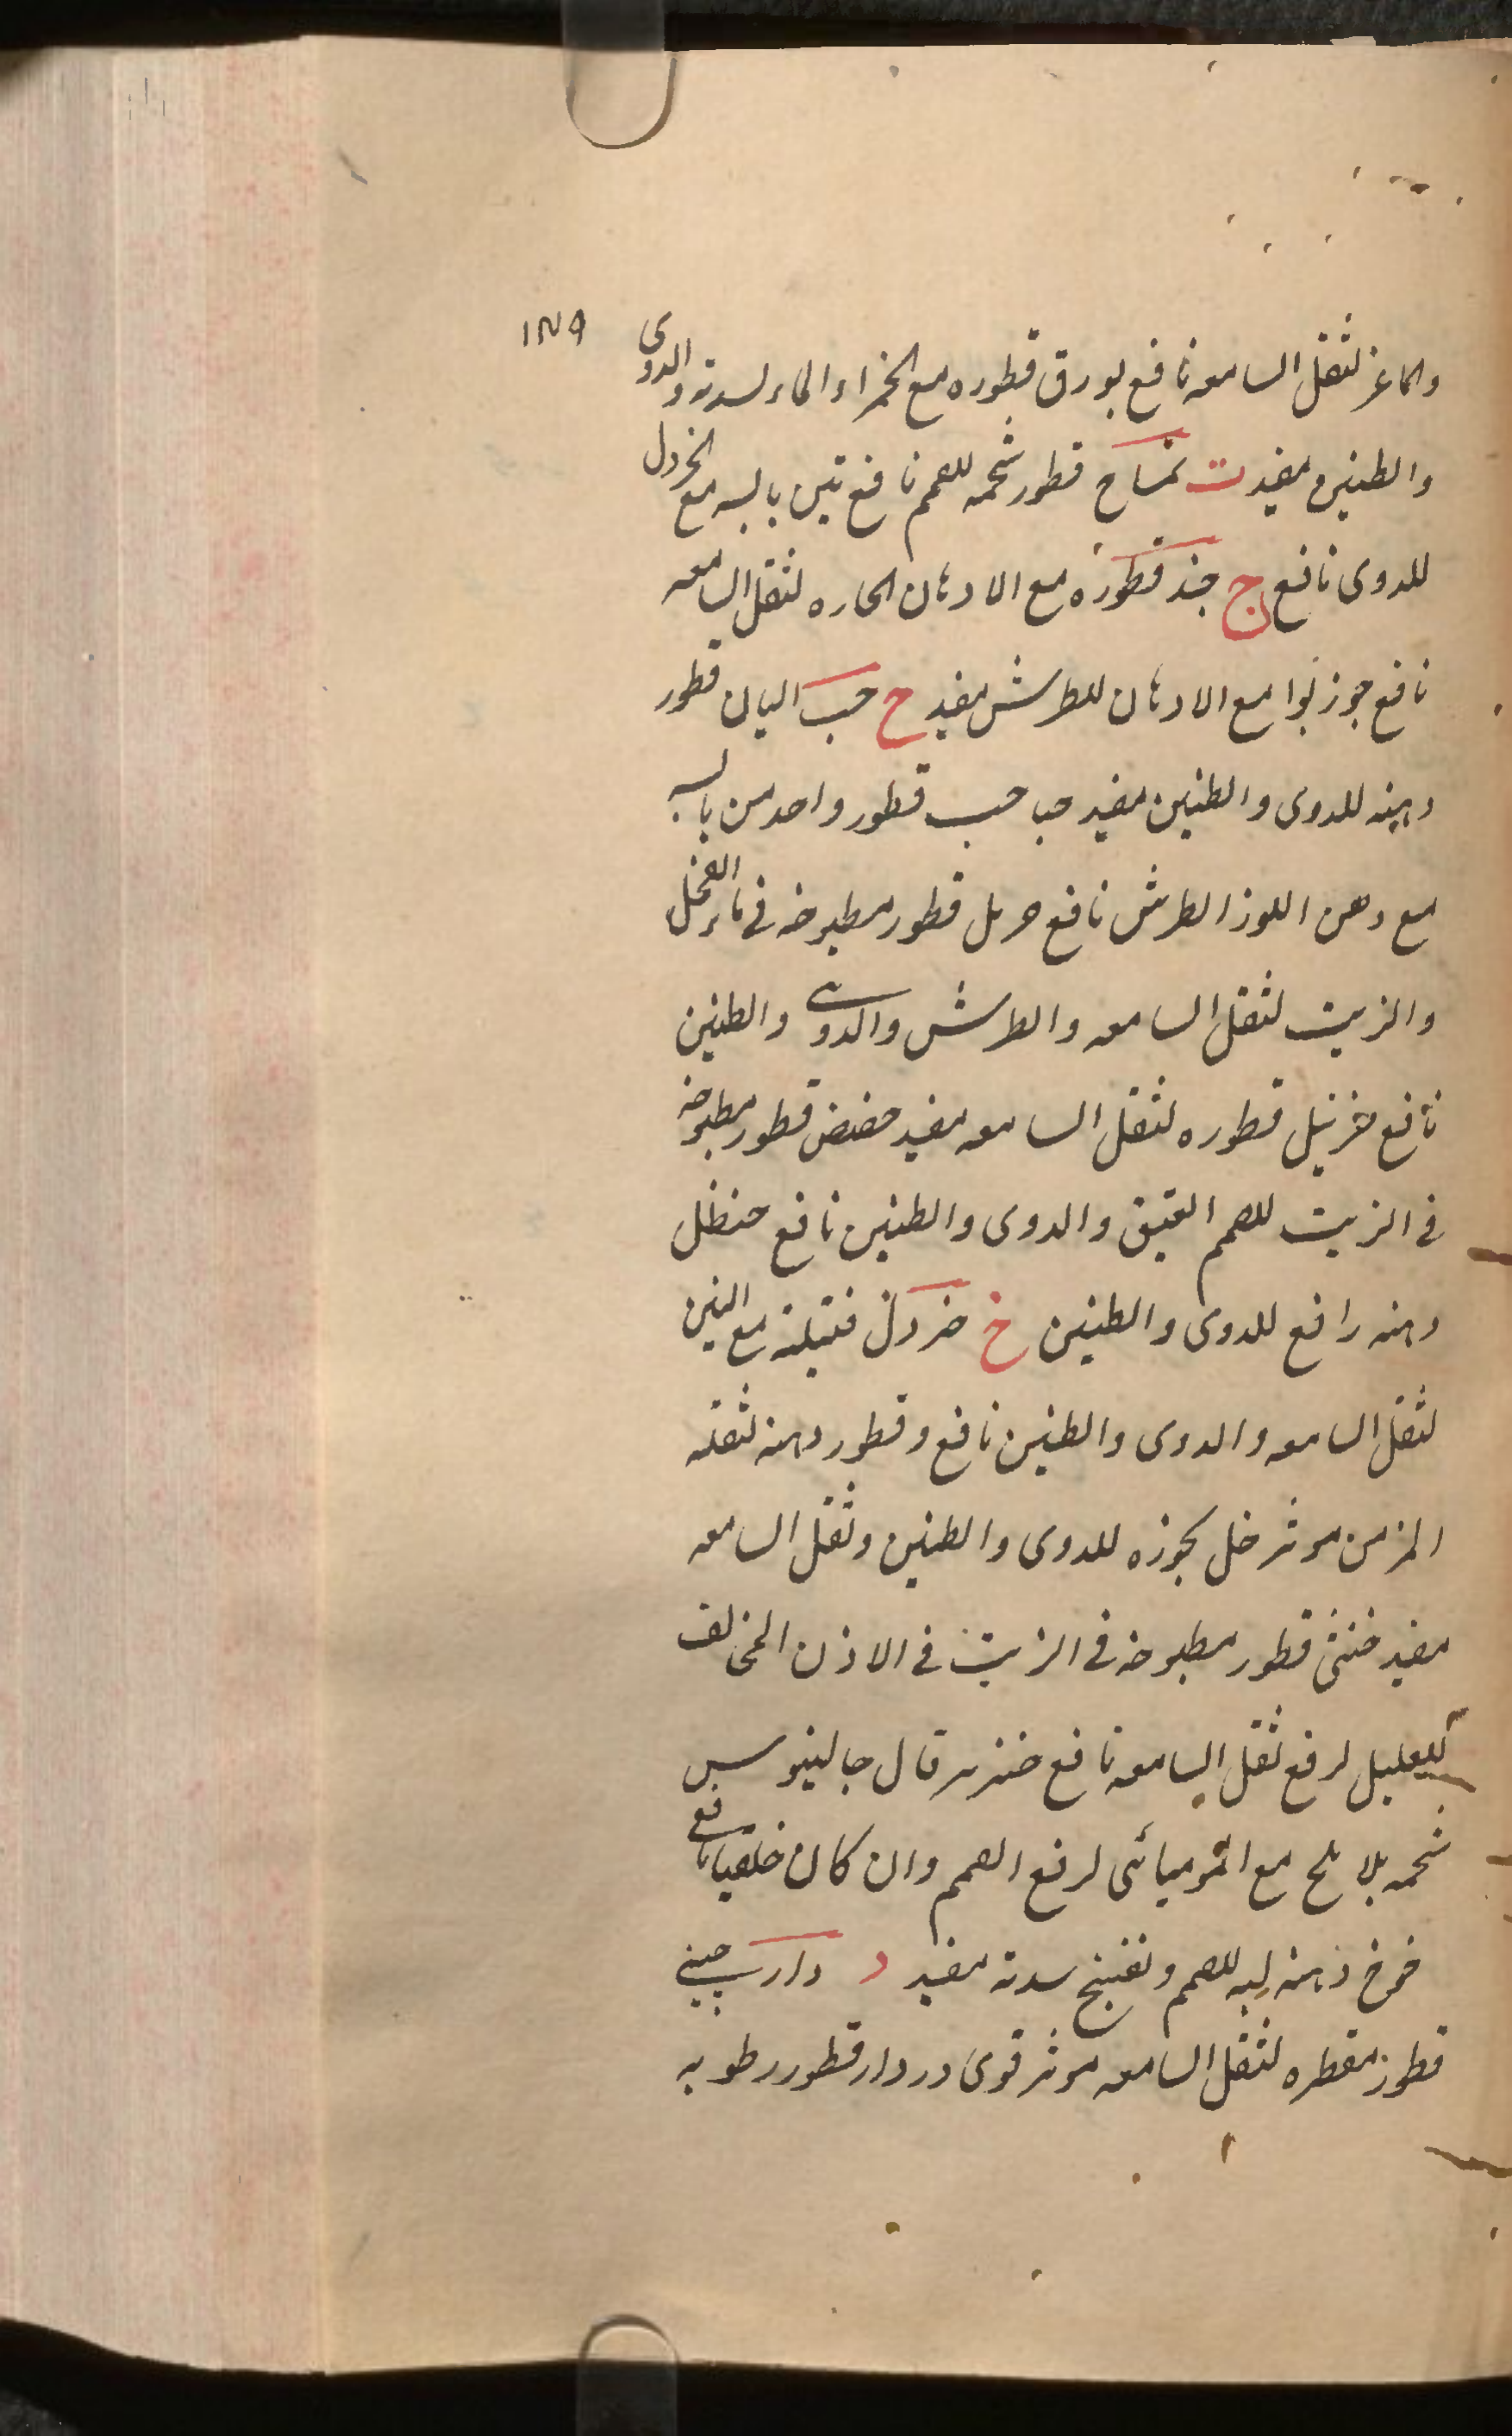 ١٢٧٩
والماعز لثقل السامعه نافع بورق قطوره مع الخمر او الماء لسدته والدوى
والطنين مفيد ت تمساح قطور شحمه للصمم نافع تين يابسه مع الخردل
للدوى نافع ج جند قطوره مع الادهان الحاره لثقل السامعه
نافع جوزبوا مع الادهان للطرش مفيد ح حب البان قطور
دهنه للدوى والطنين مفيد حباحب قطور واحد من يابسه
مع دهن اللوز الطرش نافع حرمل قطور مطبوخه فى ماء الفجل
والزيت لثقل السامعه والطرش والدوى والطنين
نافع قطوره لثقل السامعه مفيد حضض قطور مطبوخه
فى الزيت للصمم العتيق والدوى والطنين نافع حنظل
دهنه رافع للدوى والطنين خ خردل فتيلته مع التين
لثقل السامعه والدوى والطنين نافع وقطور دهنه لثقله
المزمن موثر خل بخوره للدوى والطنين وثقل السامعه
مفيد خنثى قطور مطبوخه فى الزيت فى الاذن المخالف
للعليل لرفع ثقل السامعه نافع خنزير قال جالينوس
شحمه بلا ملح مع الموميائى لرفع الصمم وان كان خلقيا نافع
خوخ دهن لبه للصمم وتفتيح سدته مفيد د دارچينى
قطور مقطره لثقل السامعه موثر قوى دردار قطور رطوبه